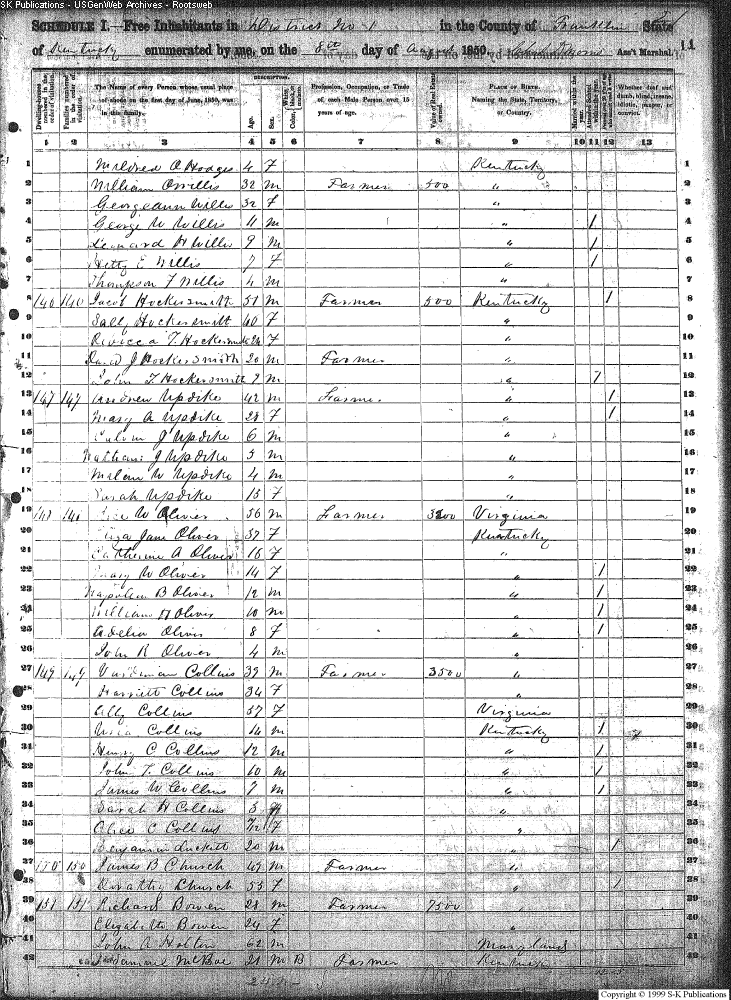 SK Publications - USGenWeb Archives - Rootsweb
SCHEDULE I.—Free Inhabitants in District No 1 in the County of Franklin State
of Kentucky enumerated by me, on the 8th day of August 1850. Ass't Marshal. 11
Dwelling-houses numbered in the order of visitation.
Families numbered in the order of visitation.
The Name of every Person whose usual place of abode on the first day of June, 1850, was in this family.
DESCRIPTION.
Age.
Sex.
Profession, Occupation, or Trade of each Male Person over 15 years of age.
Value of Real Estate owned.
PLACE OF BIRTH. Naming the State, Territory, or Country.
Married within the year.
Whether deaf and dumb, blind, insane, idiotic, pauper, or convict.
1 2 3 4 5 6 7 8 9 10 11 12 13
1 Mildred A Hodges 4 F Kentucky 1
2 William Willis 32 M Farmer 500 " 2
3 Georgeann Willis 32 F " 3
4 George W Willis 11 M " / 4
5 Leonard H Willis 9 M " / 5
6 Hetty E Willis 7 F " / 6
7 Thompson F Willis 4 M " 7
8 146 140 Jacob Hockersmith 51 M Farmer 500 Kentucky / 8
9 Sally Hockersmith 40 F " 9
10 T Hockersmith 24 F " 10
11 David J Hockersmith 20 M Farmer " 11
12 John T Hockersmith 9 M " / 12
13 147 147 Andrew Updike 42 M Farmer " / 13
14 Mary A Updike 28 F " / 14
15 J Updike 6 M " 15
16 J Updike 5 M " 16
17 W Updike 4 M " 17
18 Sarah Updike 13 F " 18
19 W Oliver 56 M Farmer 3500 Virginia 19
20 Eliza Jane Oliver 37 F Kentucky 20
21 Catherine A Oliver 16 F " 21
22 Mary W Oliver 14 F " / 22
23 Napoleon B Oliver 12 M " / 23
24 William H Oliver 10 M " / 24
25 Adelia Oliver 8 F " / 25
26 John R Oliver 4 M " 26
27 149 149 Vardiman Collins 39 M Farmer 3500 " 27
28 Harriett Collins 34 F " 28
29 Ally Collins 57 F Virginia 29
30 Collins 14 M Kentucky / 30
31 Henry C Collins 12 M " / 31
32 John T Collins 10 M " / 32
33 James W Collins 7 M " / 33
34 Sarah H Collins 3 F " 34
35 Alice C Collins 7/12 F " 35
36 Benjamin Luckett 20 M / 36
37 150 150 James B Church 49 M Farmer " 37
38 Church 55 F " / 38
39 151 151 Richard Bowen 28 M Farmer 7500 " 39
40 Elizabeth Bowen 24 F " 40
41 John A Holton 62 M Maryland 41
42 Samuel McBoe 21 M B Farmer Kentucky 42
Copyright © 1999 S-K Publications